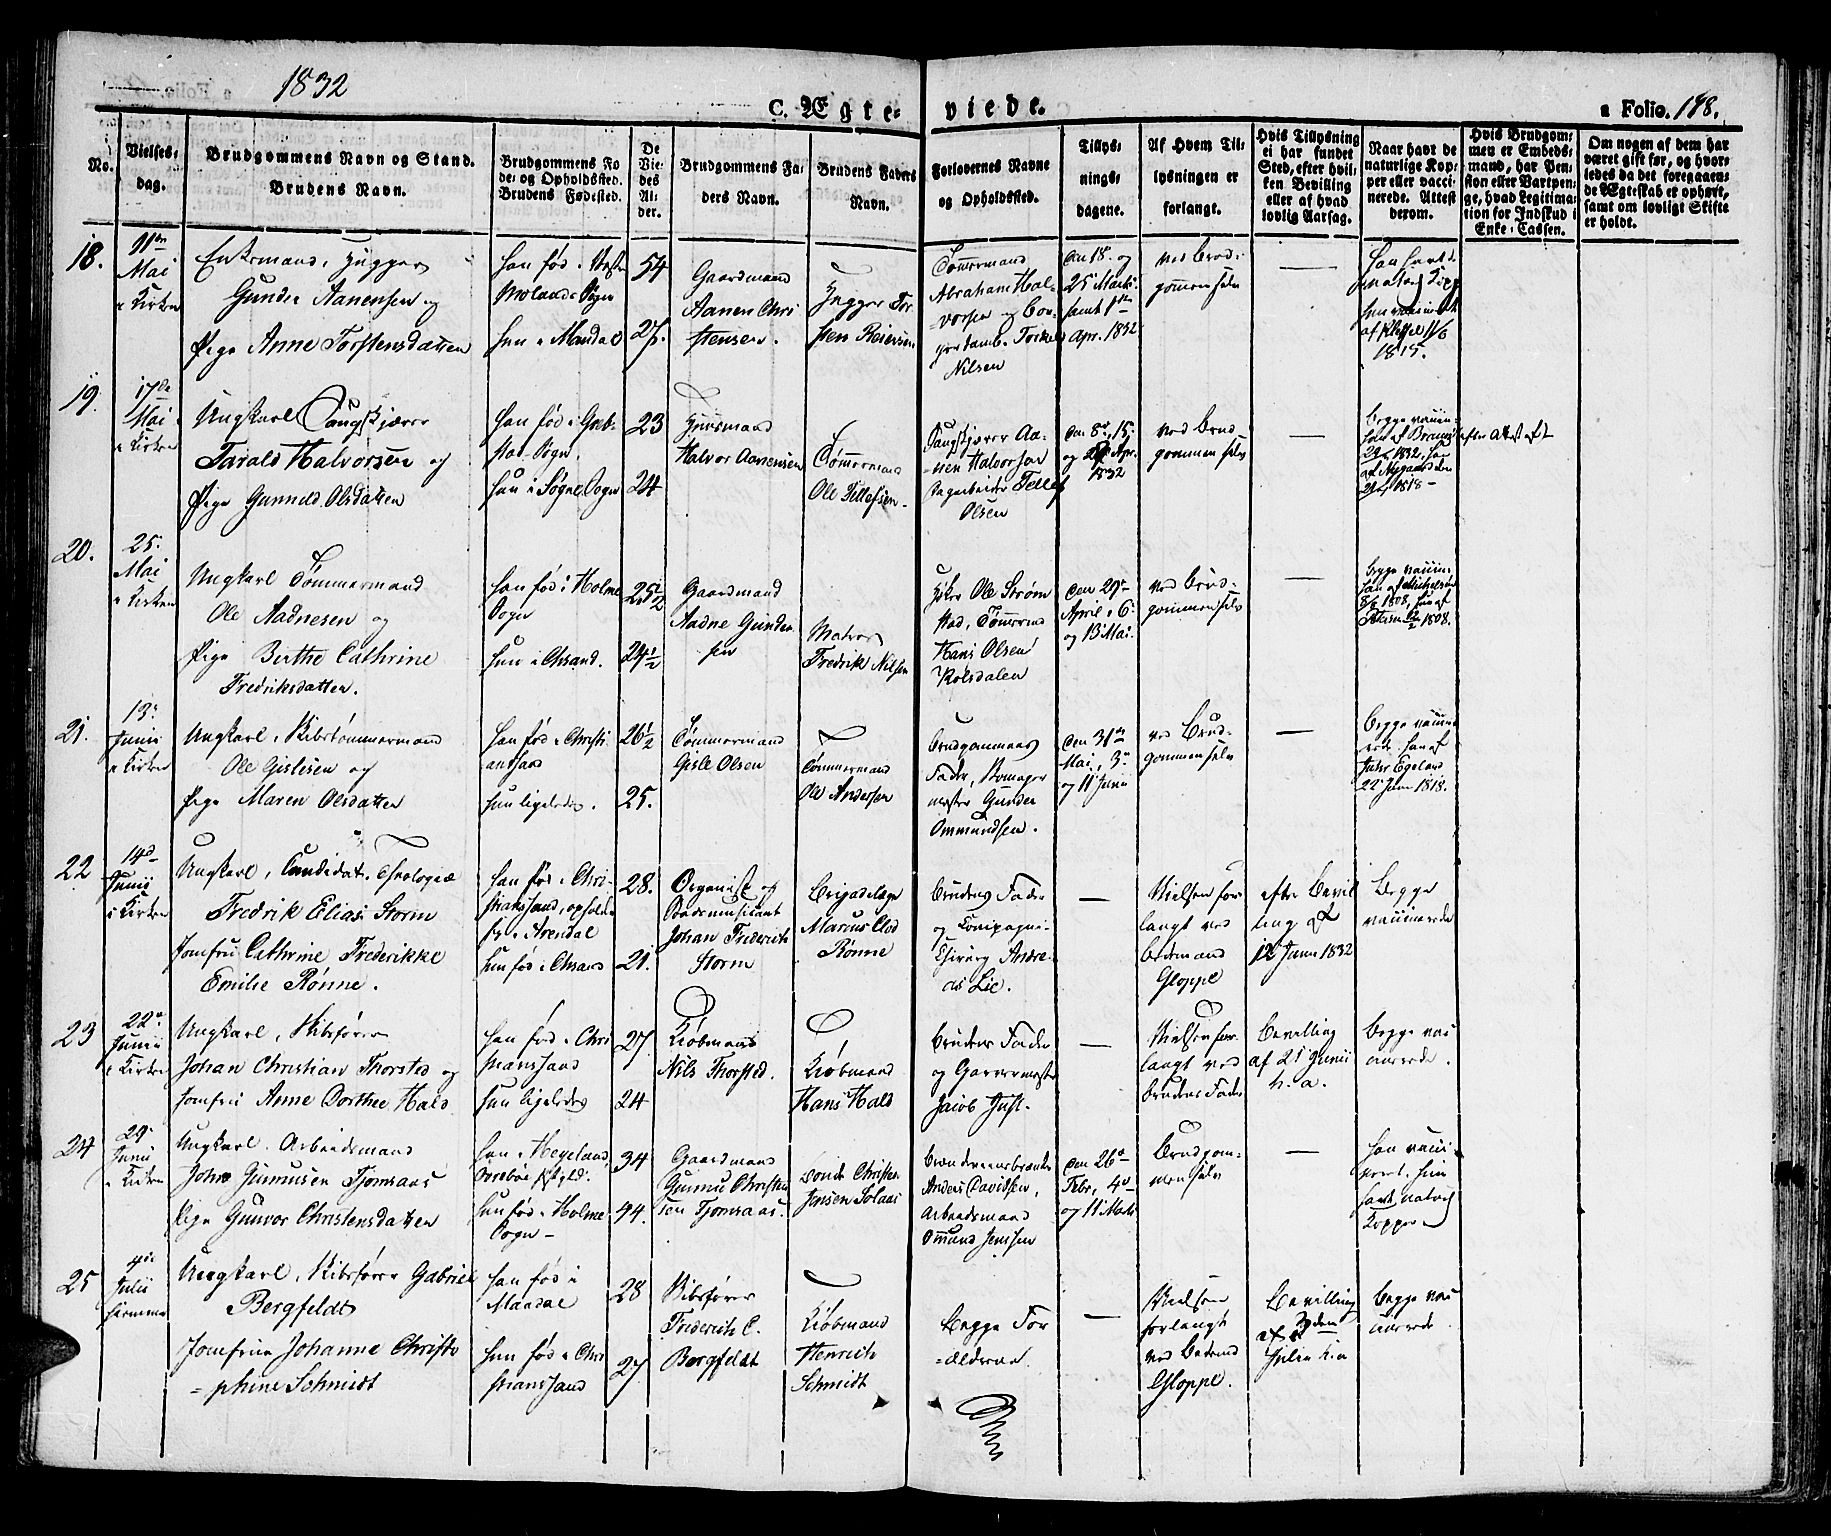 1832
C. Ægte-
viede.
a Folio. 148.
No.
Vielses-
dag.
Brudgommens Navn og Stand.
Brudens Navn.
Brudgommens Fø
de- og Opholdssted.
Brudens Fødested.
De
Vie-
des
Al-
der.
Brudgommens Fa-
ders Navn.
Brudens Faders
Navn.
Forlovernes Navne
og Opholdssted.
Tillys-
nings-
dagene.
Af Hvem Til-
lysningen er
forlangt.
Hvis Tillysning
ei har fundet
Sted, efter hvil-
ken Bevilling
eller af hvad
lovlig Aarsag.
Naar havt de
naturlige Kop-
per eller vacci-
nerede. Attest
derom.
Hvis Brudgom-
men er Embeds-
mand, har Pen-
sion eller Vartpen-
ge, hvad Legitima-
tion for Indskud i
Enke-Cassen.
Om nogen af dem har
været gift før, og hvor-
ledes da det foregaaen-
de Ægteskab er ophørt,
samt om lovligt Skifte
er holdt.
18.
11te
Mai
i Kirken
Enkemand, Hugger
Gunder Aanensen og
Pige Anne Torstensdatter
Han fød i
Molands Sogn
Hun i Mandal
54
27.
Gaardmand
Aanen Chri
stensen.
Hugger Tor
sten Reiersen
Tømermand
Abraham Hal-
vorsen og
Torkel
Nilsen
den 18. og
25 Marts
samt 1ste
Apr. 1832
ved Brud-
gommen selv
—
Han havt de
naturl. Kopp
Hun vaccineret
af Kløffel 11/6
1815.
19.
17de
Mai
i Kirken
Ungkarl
Tarald Halvorsen og
Pige Gunnild Olsdatter
Han fød i Greb-
stad Sogn.
Hun i Søgne Sogn
23
24
Huusmand
Halvor Aanensen
Tømermand
Ole Tellefsen.
Aa-
nen Halvorsen
Dagarbeider Tellef
Olsen
den 8de, 15.
og Apr.
1832
ved Brud-
gommen selv
—
Begge vaccin.
1832, Hun
af Nygaard den
1818 —
efter Attest af
20.
25.
Mai
i Kirken
Ungkarl Tømmermand
Ole Aadnesen og
Pige Berthe Cathrine
Fredriksdatter.
Han fød i Holme
Sogn
Hun i Chrsand.
25 1/2
24 1/2
Gaardmand
Aadne Gunder
sen
Matros
Fredrik Nilsen
Ole Strøm
stad, Tømermd
Hans Olsen
Kolsdalen
den 29de
April, 6.
og 13 Mai.
ved Brud-
gommen selv
—
Begge vaccin.
Han af Michelsen
1808, Hun af
1808.
21.
13.
Junii
i Kirken
Ungkarl, Skibstømmermand
Ole Gislesen og
Pige Maren Olsdatter
Han fød i Christi
ansand
Hun ligeledes.
26 1/2
25.
Tømmermand
Gisle Olsen
Tømmermand
Ole Andersen
Brudgommens
Fader,
mester Gunder
Ommundsen.
den 31te
Mai, 3.
og 11 Junii
ved Brud-
gommen selv
—
Begge vaccine
rede. Han af
Egeland
22 Juni 1818.
22
14de
Junii
i Kirken
Ungkarl, Candidat. Theologiæ
Fredrik Elias Storm
Jomfru Cathrine Frederikke
Emilie Rønne.
Han fød i Chri-
stiansand, opholder
sig i Arendal
Hun fød i Chrsand
28.
21.
Organist og
Stadsmusicant
Johan Friderich
Storm
Brigadelæge
Marcus Clod
Rønne
Brudens Fader
og Compagni-
Chirurg Andre-
as Lie.
—
Vielsen for
langt ved
Bedemand
Gloppe
efter Bevil
ling af
12 Junii 1832
Begge
vaccinerede
23
22de
Junii
i Kirken
Ungkarl, Skibsfører
Johan Christian Thorsted og
Jomfru Anne Dorthee Hald
Han fød i Chri
stiansand
Hun ligeledes
27
24
Kiøbmand
Nils Thorsted.
Kiøbmand
Hans Hald
Brudens Fader
og Garvermester
Jacob Just.
—
Vielsen for
langt ved
Brudens Fader
Bevilling
af 21 Junii
h. a.
Begge vac
cinerede.
24
29.
Junii
i Kirken
Ungkarl. Arbeidsmand
John Gunnusen Tjomsaas
Pige Gunvor Christensdatter
Han i Hegeland,
Hun fød i Holme
Sogn —
34
44.
Gaardmand
Gunnu Christen
sen Tjomsaas.
Bonde Christen
Jensen Solaas
Brændeviinsbrænder
Anders Davidsen,
Arbeidsmand
Omund Jenssen
den 26de
Febr, 4de
og 11 Marts
Brudgom-
men selv
—
Han vacci-
neret, Hun
havt naturl.
Kopper
25
4de
Julii
hiemme
Ungkarl, Skibsfører Gabriel
Bergfeldt
Jomfrue Johanne Christo
=phine Schmidt
Han fød i
Mandal
Hun fød i Chri
stiansand
28
27
Skibsfører
Friderich C.
Bergfeldt
Kiøbmand
Henrich
Schmidt
Begge For
=ældrene.
—
Vielsen
forlangt
ved Bedemd
Gloppe.
Bevilling
af 3den
Julii h. a.
Begge vac
cinerede.